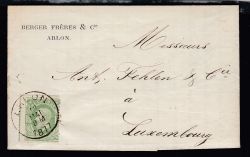 BERGER FRÈRES & Cie
ARLON.
Messieurs
Ant. Fehlen & Cie
à
Luxembourg
ARLON